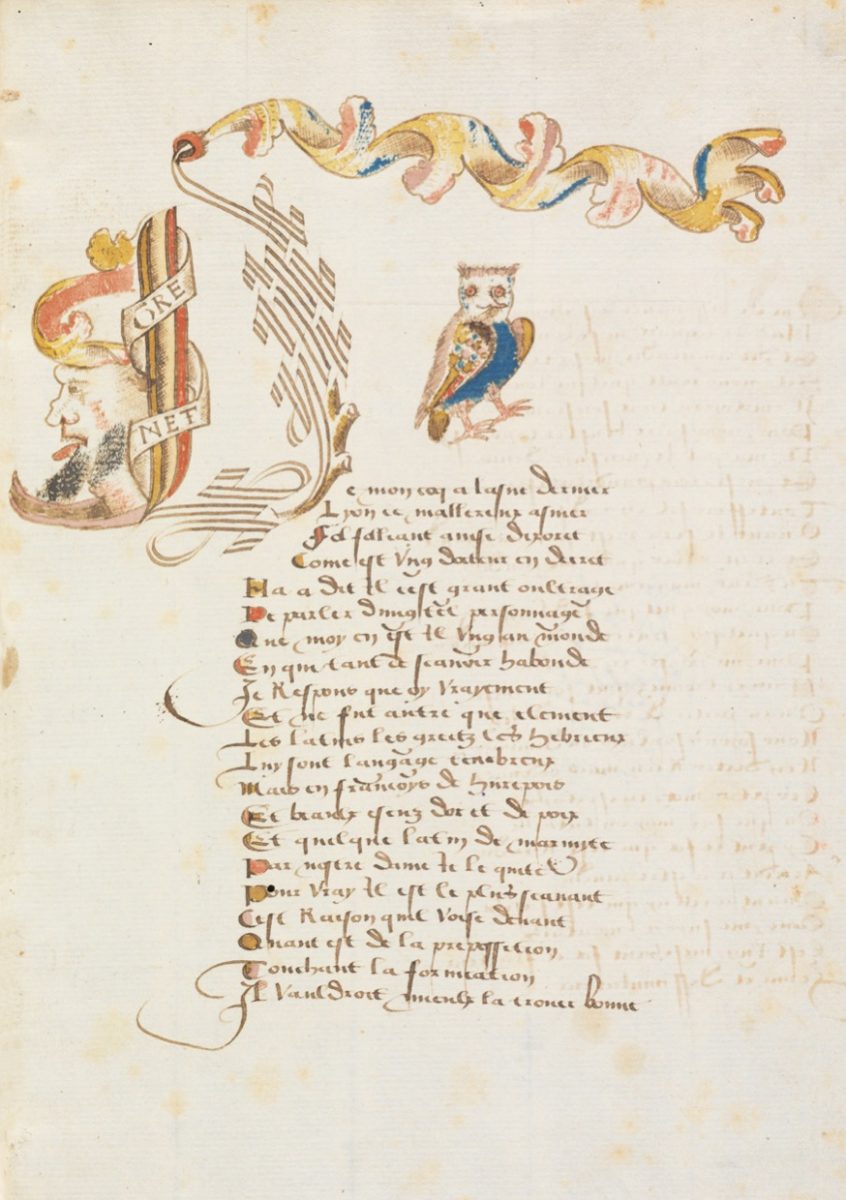 ORE
NET
e mon coq a lasne dernier
Lyon ce mallereux asnier
Fol foleant
Come est Vng docteur en decret
Ha a dit il cest grant oultrage
De parler dung tel personnage
Que moy en est Il Vng au monde
En qui tant de scauoir habonde
Je Respons que oy Vrayement
Et ne fut autre que clement
Les latins les grectz les hebrieux
Luy sont langage tenebreux
Mais en francoys de hurepois
Et beaulx escuz dor et de poix
Et quelque latin de marmite
Par nostre dame Je le quite
Pour Vray Il est le plus scauant
Cest Raison quil Voise deuant
Quant est de la prepossition
Touchant la fornication
Il Vauldroit mieulx la trouer bonne